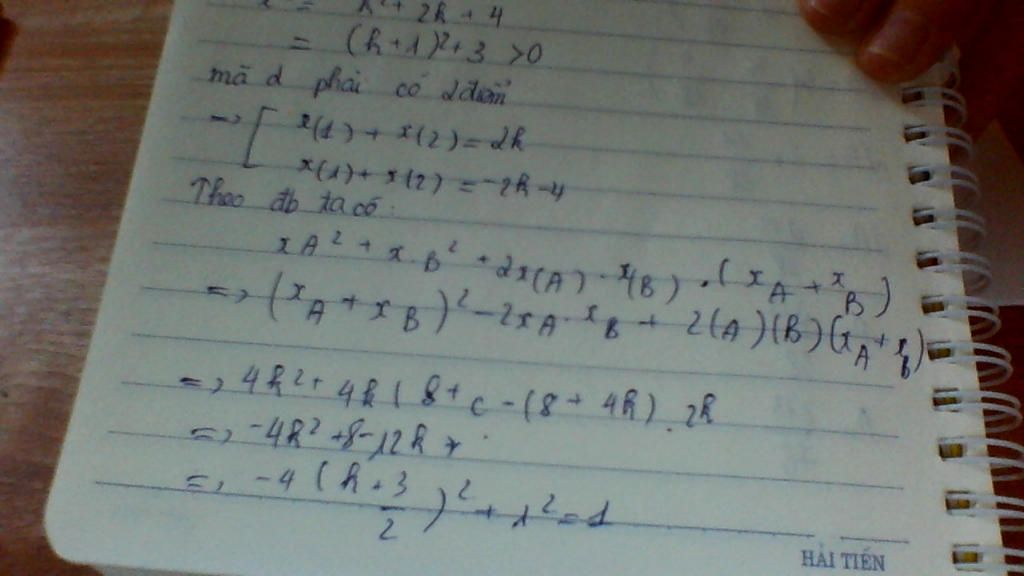 = k² + 2k + 4
= (k+1)² + 3 > 0
mà d phải có 2 điểm
=> [ x(1) + x(2) = 2k
x(1) + x(2) = -2k-4
Theo đb ta có:
xA² + x.B² + 2x(A) . x(B) . (xA + xB)
=> (xA + xB)² - 2xA.xB + 2(A)(B)(xA + xB)
=> 4k² + 4k ( 8 + c - (8 + 4k) . 2k
=> -4k² + 8 - 12k +
=> -4 (k + 3/2)² + 1² = 1
HẢI TIẾN